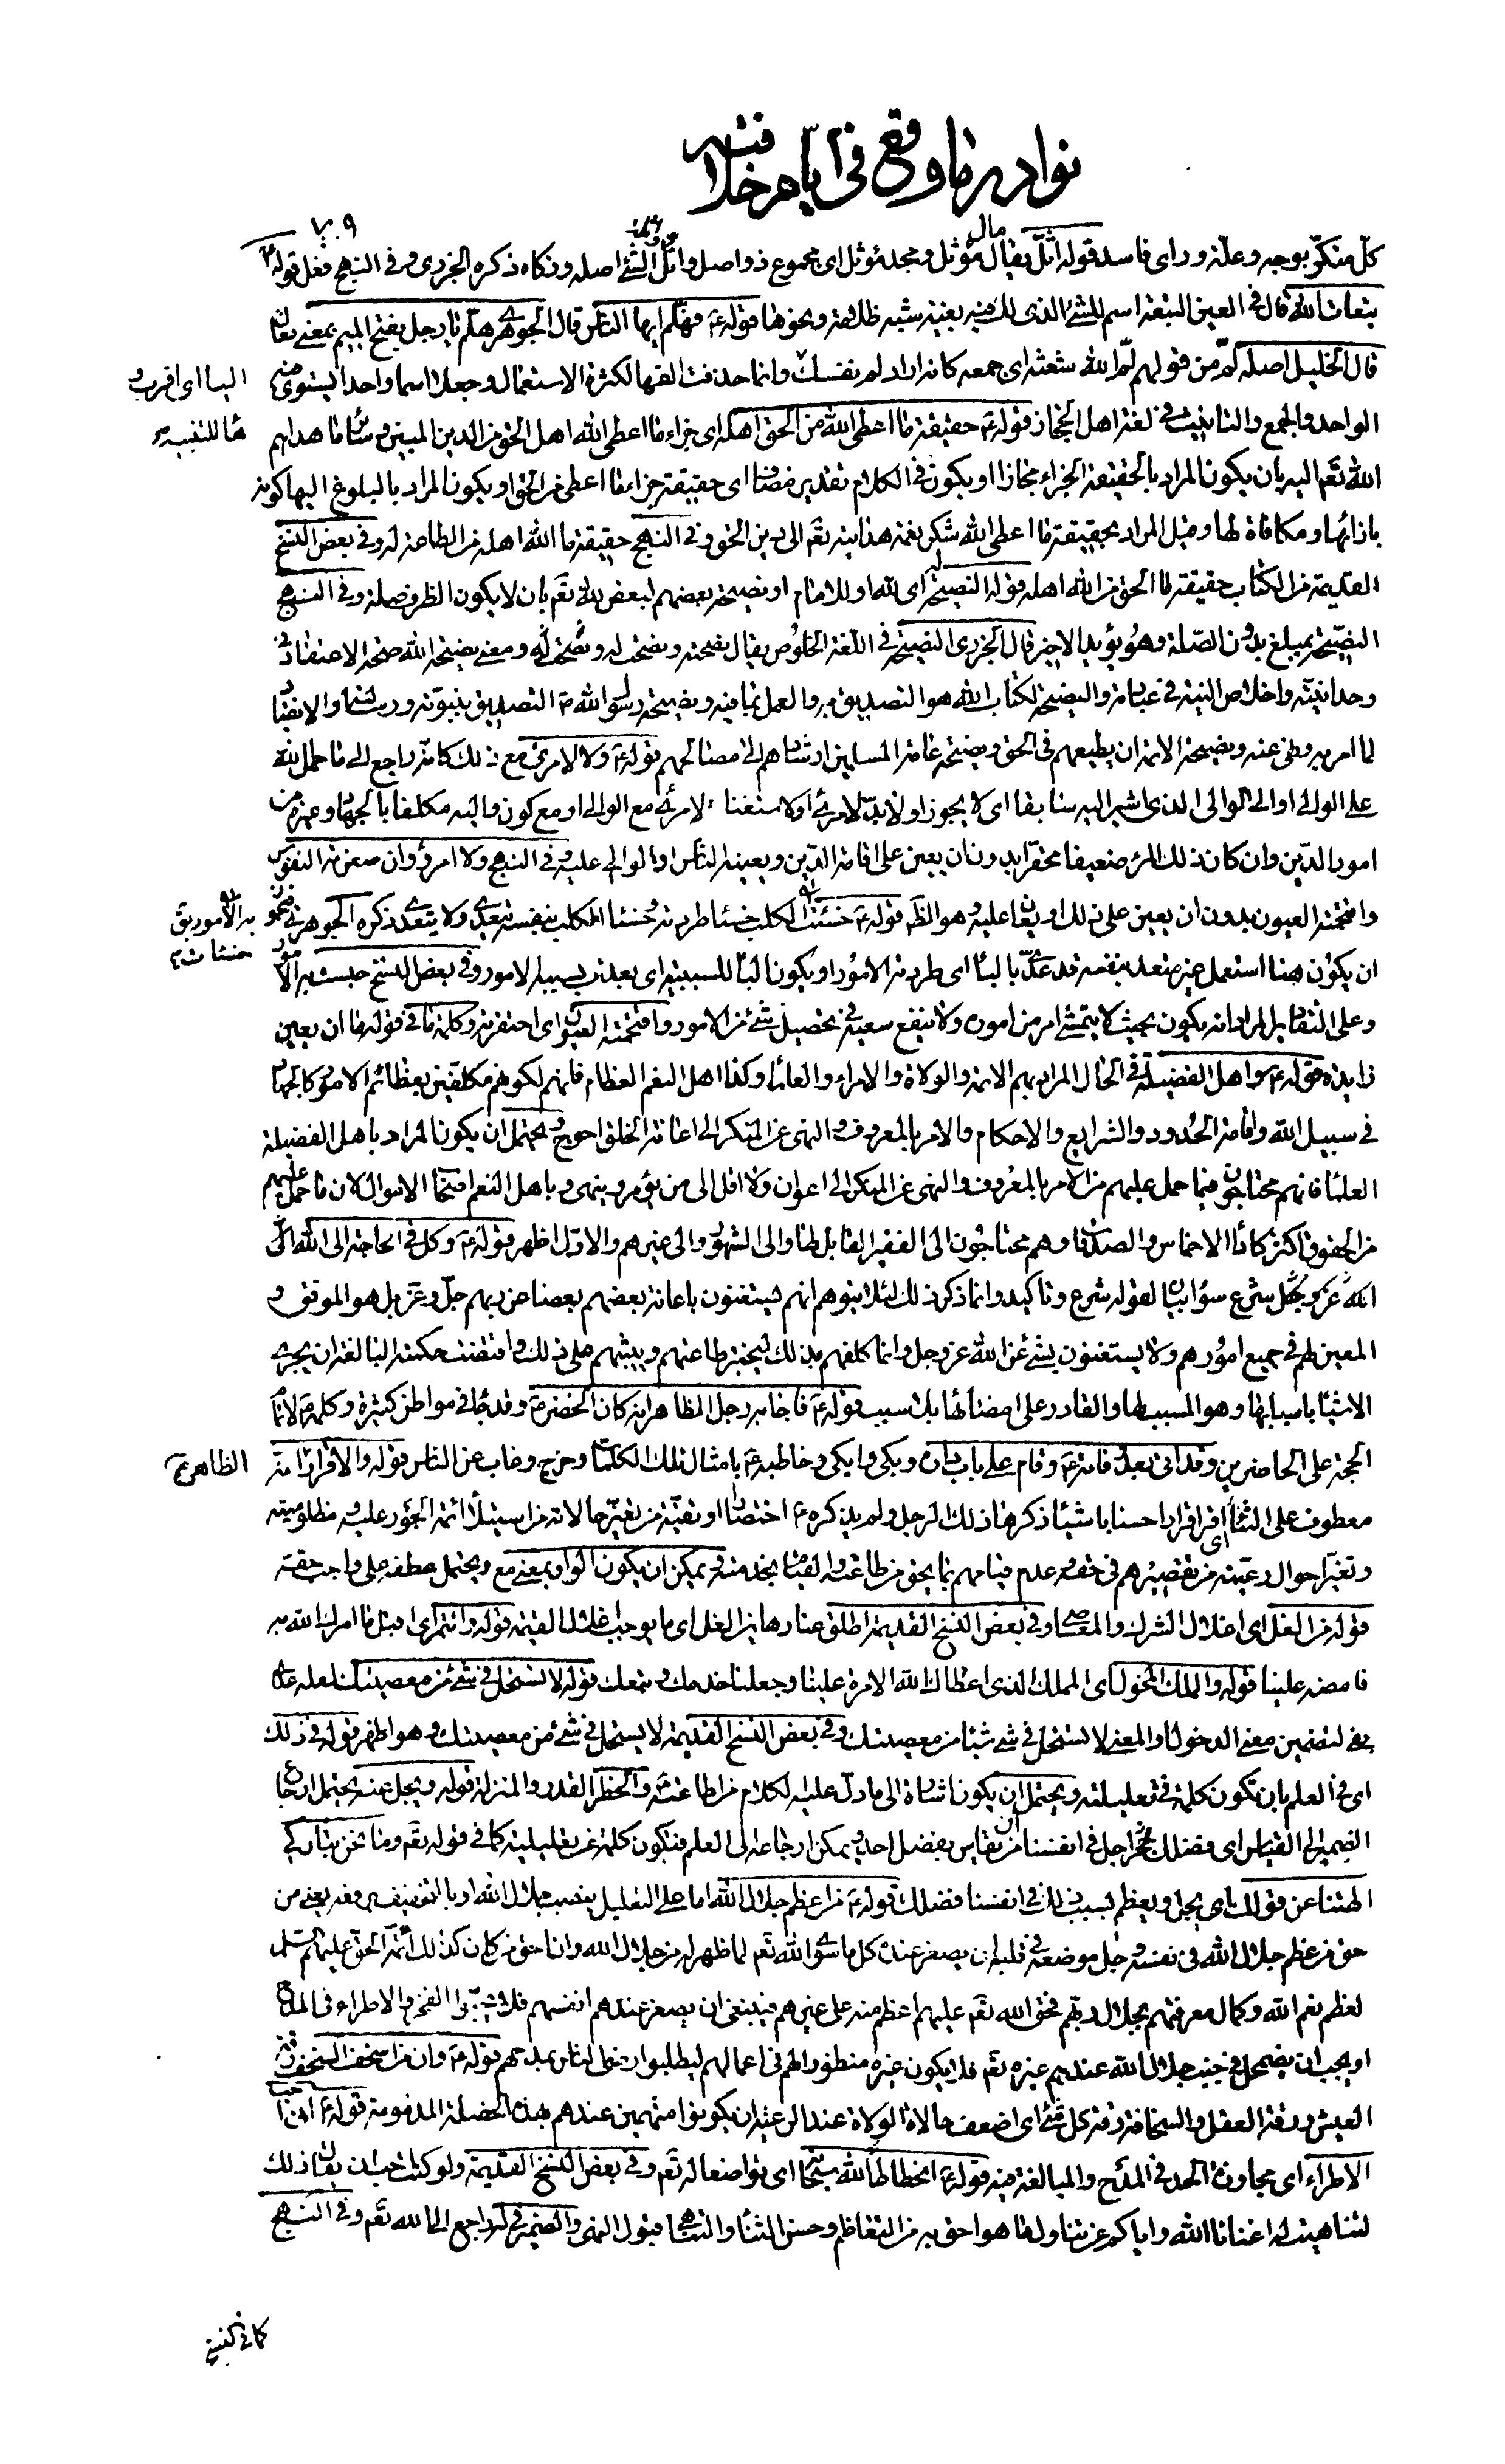 نوادر ما وقع في ايام خلافته
٧٠٩
كلّ منكر بوجه وعلّة وراى فاسد قوله اثّل يقال مال مؤثل ومجد مؤثل اى مجموع ذو اصل واثل الشئ اصله وزكاه ذكره الجزرى وفى النهج فعل قوله ع
بتعات الله قال فى العين التبعة اسم للشئ الذى لك فيه بغية شبه ظلامة ونحوها قوله ع فهلم ايها الناس قال الجوهرى هلم يا رجل بفتح الميم بمعنى تعال
قال الخليل اصله لمّ من قولهم لمّ الله شعثه اى جمعه كانه اراد لم نفسك الينا اى اقرب وها للتنبيه وانما حذفت الفها لكثرة الاستعمال وجعلا اسما واحدا يستوى فيه
الواحد والجمع والتانيث فى لغة اهل الحجاز قوله ع حقيقة ما اعطى الله من الحق اهله اى جزاء ما اعطى الله اهل الحق من الدين المبين وسائر ما هداهم
الله تعم اليه بان يكون المراد بالحقيقة الجزاء مجازا او يكون فى الكلام تقدير مضاف اى حقيقة جزاء ما اعطى من الحق او يكون المراد بالبلوغ اليها كونه
بازائها ومكافاة لها وقيل المراد بحقيقة ما اعطى الله شكر نعمة هدايته تعم الى دين الحق وفى النهج حقيقة ما الله اهله من الطاعة له وفى بعض النسخ
القديمة من الكتاب حقيقة ما الحق من الله اهله قوله النصيحة له اى لله او للامام او نصيحة بعضهم لبعض لله تعم بان لا يكون الظرف صلة وفى النهج
النصيحة بمبلغ بدون الصلة وهو يؤيد الاخير قال الجزرى النصيحة فى اللغة الخلوص يقال نصحته ونصحت له ومعنى نصيحة الله صحة الاعتقاد فى
وحدانيته واخلاص النية فى عبادته والنصيحة لكتاب الله هو التصديق به والعمل بما فيه ونصيحة رسول الله ص التصديق بنبوته ورسالته والانقياد
لما امر به ونهى عنه ونصيحة الائمة ان يطيعهم فى الحق ونصيحة عامة المسلمين ارشادهم الى مصالحهم قوله ع ولا لامرئ مع ذلك كانه راجع الى ما حمل الله
على الوالى او الى الوالى الذى اشير اليه سابقا اى لا يجوز او لا بد لامرئ او لا استغناء لامرئ مع الوالى او مع كون واليه مكلفا بالجهاد وغيره من
امور الدين وان كان ذلك المرء ضعيفا محقرا بدون ان يعين على اقامة الدين ويعينه الناس او الوالى عليه وفى النهج ولا امرؤ وان صغرته النفوس
واقتحمته العيون بدون ان يعين على ذلك او يعان عليه وهو الظ قوله ع خسئت به الامور يق خسئت الكلب خسئا طردته وخسئا الكلب بنفسه يتعدى ولا يتعدى ذكره الجوهرى فيجوز
ان يكون هنا استعمل غير متعد بنفسه قد عدّى بالباء اى طردته الامور او يكون الباء للسببية اى بعدت بسببه الامور وفى بعض النسخ حبست به الامور
وعلى التقادير المراد انه يكون بحيث لا يتمشى امر من اموره ولا ينفع سعيه فى تحصيل شئ من الامور واقتحمته العيون اى احتقرته وكلمة ما فى قوله ما ان يعين
زايدة قوله ع واهل الفضيلة فى الحال المراد بهم الائمة والولاة والامراء والعلماء وكذا اهل النعم العظام فانهم لكونهم مكلفين بعظائم الامور كالجهاد
فى سبيل الله واقامة الحدود والشرايع والاحكام والامر بالمعروف والنهى عن المنكر الى اعانة الخلق احوج ويحتمل ان يكون المراد باهل الفضيلة
العلماء فانهم محتاجون فيما حمل عليهم من الامر بالمعروف والنهى عن المنكر الى اعوان ولا اقل الى من يؤمر وينهى وباهل النعم اصحاب الاموال لان ما حمل عليهم
من الحقوق اكثر كاداء الاخماس والصدقات وهم محتاجون الى الفقير القابل لها والى الشهود والى غيرهم والاول اظهر قوله ع وكل فى الحاجة الى الله
الله عز وجل شرع سواء بيان لقوله شرع وتاكيد وانما ذكر ذلك لئلا يتوهم انهم يستغنون باعانة بعضهم بعضا عن ربهم جل وعز بل هو الموفق و
المعين لهم فى جميع امورهم ولا يستغنون بشئ عن الله عز وجل وانما كلفهم بذلك ليختبر طاعتهم ويثيبهم على ذلك واقتضت حكمته البالغة ان يجرى
الاشياء باسبابها وهو المسبب لها والقادر على امضائها بلا سبب قوله ع فاجابه رجل الظاهر انه كان الخضر ع وقد جاء فى مواطن كثيرة وكلمه ع لاتمام
الحجة على الحاضرين وقد اتى بعد وفاته ع وقام على باب داره وبكى وابكى وخاطبه ع بامثال تلك الكلمات وخرج وغاب عن الناس قوله والاقرار الظاهر انه
معطوف على الثناء اى اقر اقرارا حسنا باشياء ذكرها ذلك الرجل ولم يذكره ع اختصارا او تقية من تغير حالاته من استيلاء ائمة الجور عليه ومظلوميته
وتغير احوال رعيته من تقصيرهم فى حقه وعدم قيامهم بما يحق من طاعته والقيام بخدمته ويمكن ان يكون الواو بمعنى مع ويحتمل عطفه على واجب حقه
قوله من الغل اى اغلال الشرك والمعاصى وفى بعض النسخ القديمة اطلق عنا رهاين الغل اى ما يوجب اغلال القيمة قوله وائتمر اى اقبل ما امرك الله به
فامضه علينا قوله والملك المخول اى الملك الذى اعطاك الله الامرة علينا وجعلنا خدمك وتبعك قوله لا نستحل فى شئ من معصيتك لعله عدى
بفى لتضمين معنى الدخول او المعنى لا نستحل فى شئ شيئا من معصيتك وفى بعض النسخ القديمة لا يستحل فى شئ من معصيتك وهو اظهر قوله فى ذلك
اى فى العلم بان تكون كلمة فى تعليلية ويحتمل ان يكون اشارة الى ما دل عليه الكلام من طاعته والخطر القدر والمنزلة قوله ويجل عنه يحتمل ارجاع
الضمير الى القياس اى فضلك اجل فى انفسنا من ان يقاس بفضل احد ويمكن ارجاعه الى العلم فتكون كلمة عن تعليلية كما فى قوله تعم وما نحن بتاركى
الهتنا عن قولك اى يجل ويعظم بسبب ذلك فى انفسنا فضلك قوله ع من عظم جلال الله اما على التفعيل بنصب جلال الله او بالتخفيف برفعه يعنى من
حق من عظم جلال الله فى نفسه وجل موضعه فى قلبه ان يصغر عنده كل ما سوى الله تعم لما ظهر له من جلال الله وان احق من كان كذلك ائمة الحق عليهم السلم
لعظم نعم الله وكمال معرفتهم بجلال ربهم فحق الله تعم عليهم اعظم منه على غيرهم فينبغى ان يصغر عندهم انفسهم فلا يحبوا الفخر والاطراء فى المدح
او يجب ان يضمحل فى جنب جلال الله عندهم غيره تعم فلا يكون غيره منظورا لهم فى اعمالهم ليطلبوا رضى الناس بمدحهم قوله ع وان من اسخف السخف رقة
العيش ورقة العقل والسخافة رقة كل شئ اى اضعف حالات الولاة عند الرعية ان يكونوا متهمين عندهم بهذه الخصلة المذمومة قوله ع انى احب
الاطراء اى مجاوزة الحد فى المدح والمبالغة فيه قوله ع انحطاطا لله سبحانه اى تواضعا له تعم وفى بعض النسخ القديمة ولو كنت احب ان يقال ذلك
لتناهيت له اغنانا الله واياكم عن تناول ما هو احق به من التعاظم وحسن الثناء والتناهى قبول النهى والضمير فى له راجع الى الله تعم وفى النهج
كما فى